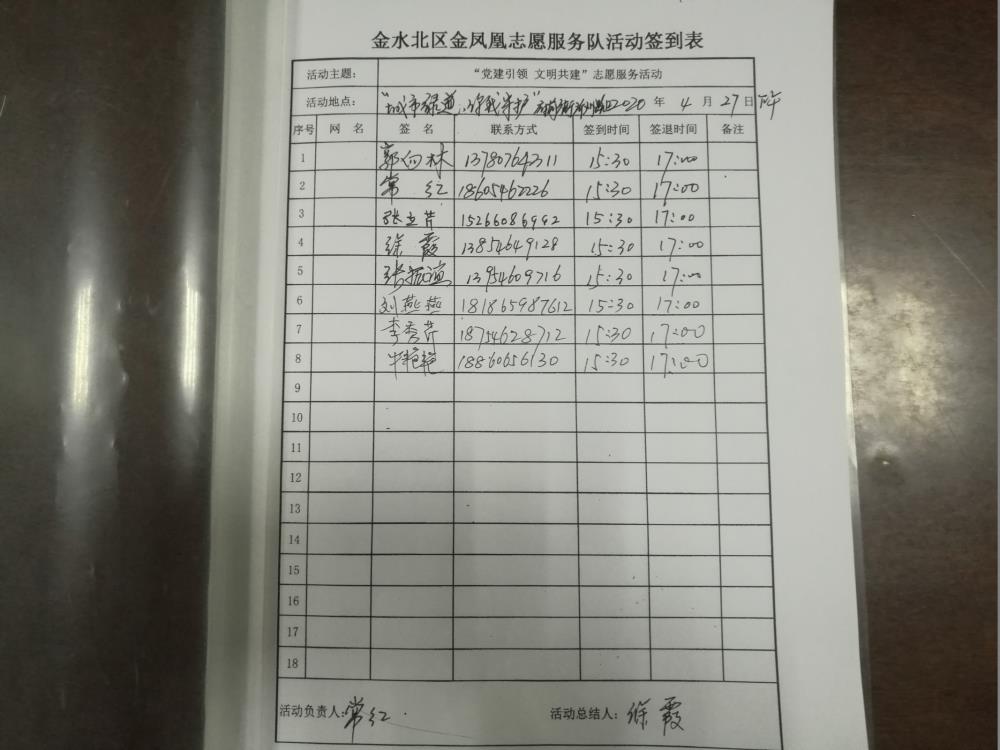 金水北区金凤凰志愿服务队活动签到表
活动主题： “党建引领 文明共建”志愿服务活动
活动地点： “城市绿道，你我守护” 2020 年 4 月 27 日 下午
序号 网 名 签 名 联系方式 签到时间 签退时间 备注
1 郭向林 13780764311 15:30 17:00
2 常红 18605462226 15:30 17:00
3 张立芹 15266086992 15:30 17:00
4 徐霞 13854649128 15:30 17:00
5 张振谊 13954609716 15:30 17:00
6 刘燕燕 181865987612 15:30 17:00
7 李秀芹 18754628712 15:30 17:00
8 牛艳艳 18860656130 15:30 17:00
9
10
11
12
13
14
15
16
17
18
活动负责人：常红 活动总结人：徐霞